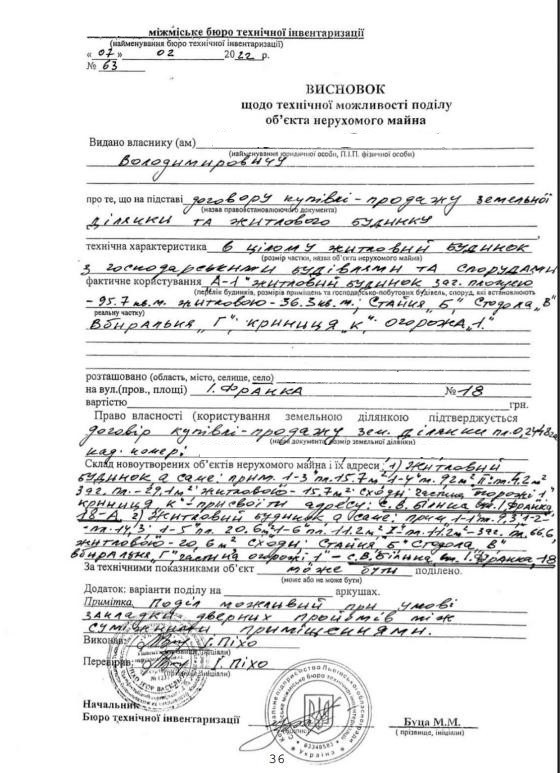 міжміське бюро технічної інвентаризації
(найменування бюро технічної інвентаризації)
« 07 » 02 2022 р.
№ 63
ВИСНОВОК
щодо технічної можливості поділу
об’єкта нерухомого майна
Видано власнику (ам)
(найменування юридичної особи, П.І.П. фізичної особи)
Володимировичу
про те, що на підставі договору купівлі-продажу земельної
(назва правовстановлюючого документа)
ділянки та житлового будинку
технічна характеристика в цілому житловий будинок
(розмір частки, назва об’єкта нерухомого майна)
з господарськими будівлями та спорудами
фактичне користування А-1" житловий будинок заг. площею
(перелік будинків, розмірів приміщень та господарсько-побутових будівель, споруд, які встановлюють
- 95.7 кв.м. житловою - 36.3 кв.м.; Стайня „Б" Стодола „В"
реальну частку)
Вбиральня „Г"; криниця „к"; огорожа „1."
розташовано (область, місто, селище, село)
на вул.(пров., площі) І. Франка №18
вартістю грн.
Право власності (користування земельною ділянкою підтверджується
договір купівлі-продажу зем. ділянки пл. 0,2448 га
(назва документа, розмір земельної ділянки)
кад. номер:
Склад новоутворених об’єктів нерухомого майна і їх адреси 1) Житловий
будинок а саме: прим. 1-3 пл. 15.7 м² 1-4 м. 9.2 м² ІІ: м. 4.2 м²
заг. пл. - 29,1 м² житловою - 15.7 м² сходи: частина огорожі 1"
криниця к"- присвоїти адресу: с. В. Білина вул. І. Франка,
18-А. 2) Житловий будинок а саме: прим. 1-1 м. 9,3 1-2-
- пл. 14,3; 1-5 пл. 20.6 м² 1-6 пл. 11.2 м² І" пл. 11.2 м² - заг. пл. 66.6
житловою - 20,6 м² сходи: Стайня „Б" Стодола „В"
вбиральня „Г" частина огорожі 1" - с. В. Білина вул. І. Франка, 18
За технічними показниками об’єкт може бути поділено.
(може або не може бути)
Додаток: варіанти поділу на аркушах.
Примітка. Поділ можливий при умові
закладки дверних пройомів між
суміжними приміщеннями.
Виконав: І. Піхо
(прізвище, ініціали)
Перевірив: І. Піхо
(прізвище, ініціали)
Начальник
Бюро технічної інвентаризації Буца М.М.
(підпис) ( прізвище, ініціали)
Україна
03348583
36